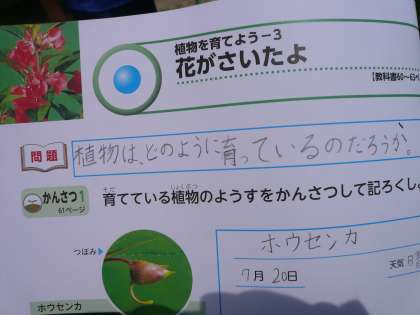 植物を育てよう－3
花がさいたよ
【教科書60～63ペ
問題
植物は、どのように育っているのだろうか。
かんさつ1
61ページ
育てている植物のようすをかんさつして記ろくし
そだ
しょくぶつ
つぼみ
ホウセンカ
7月20日
天気
ホウセンカ